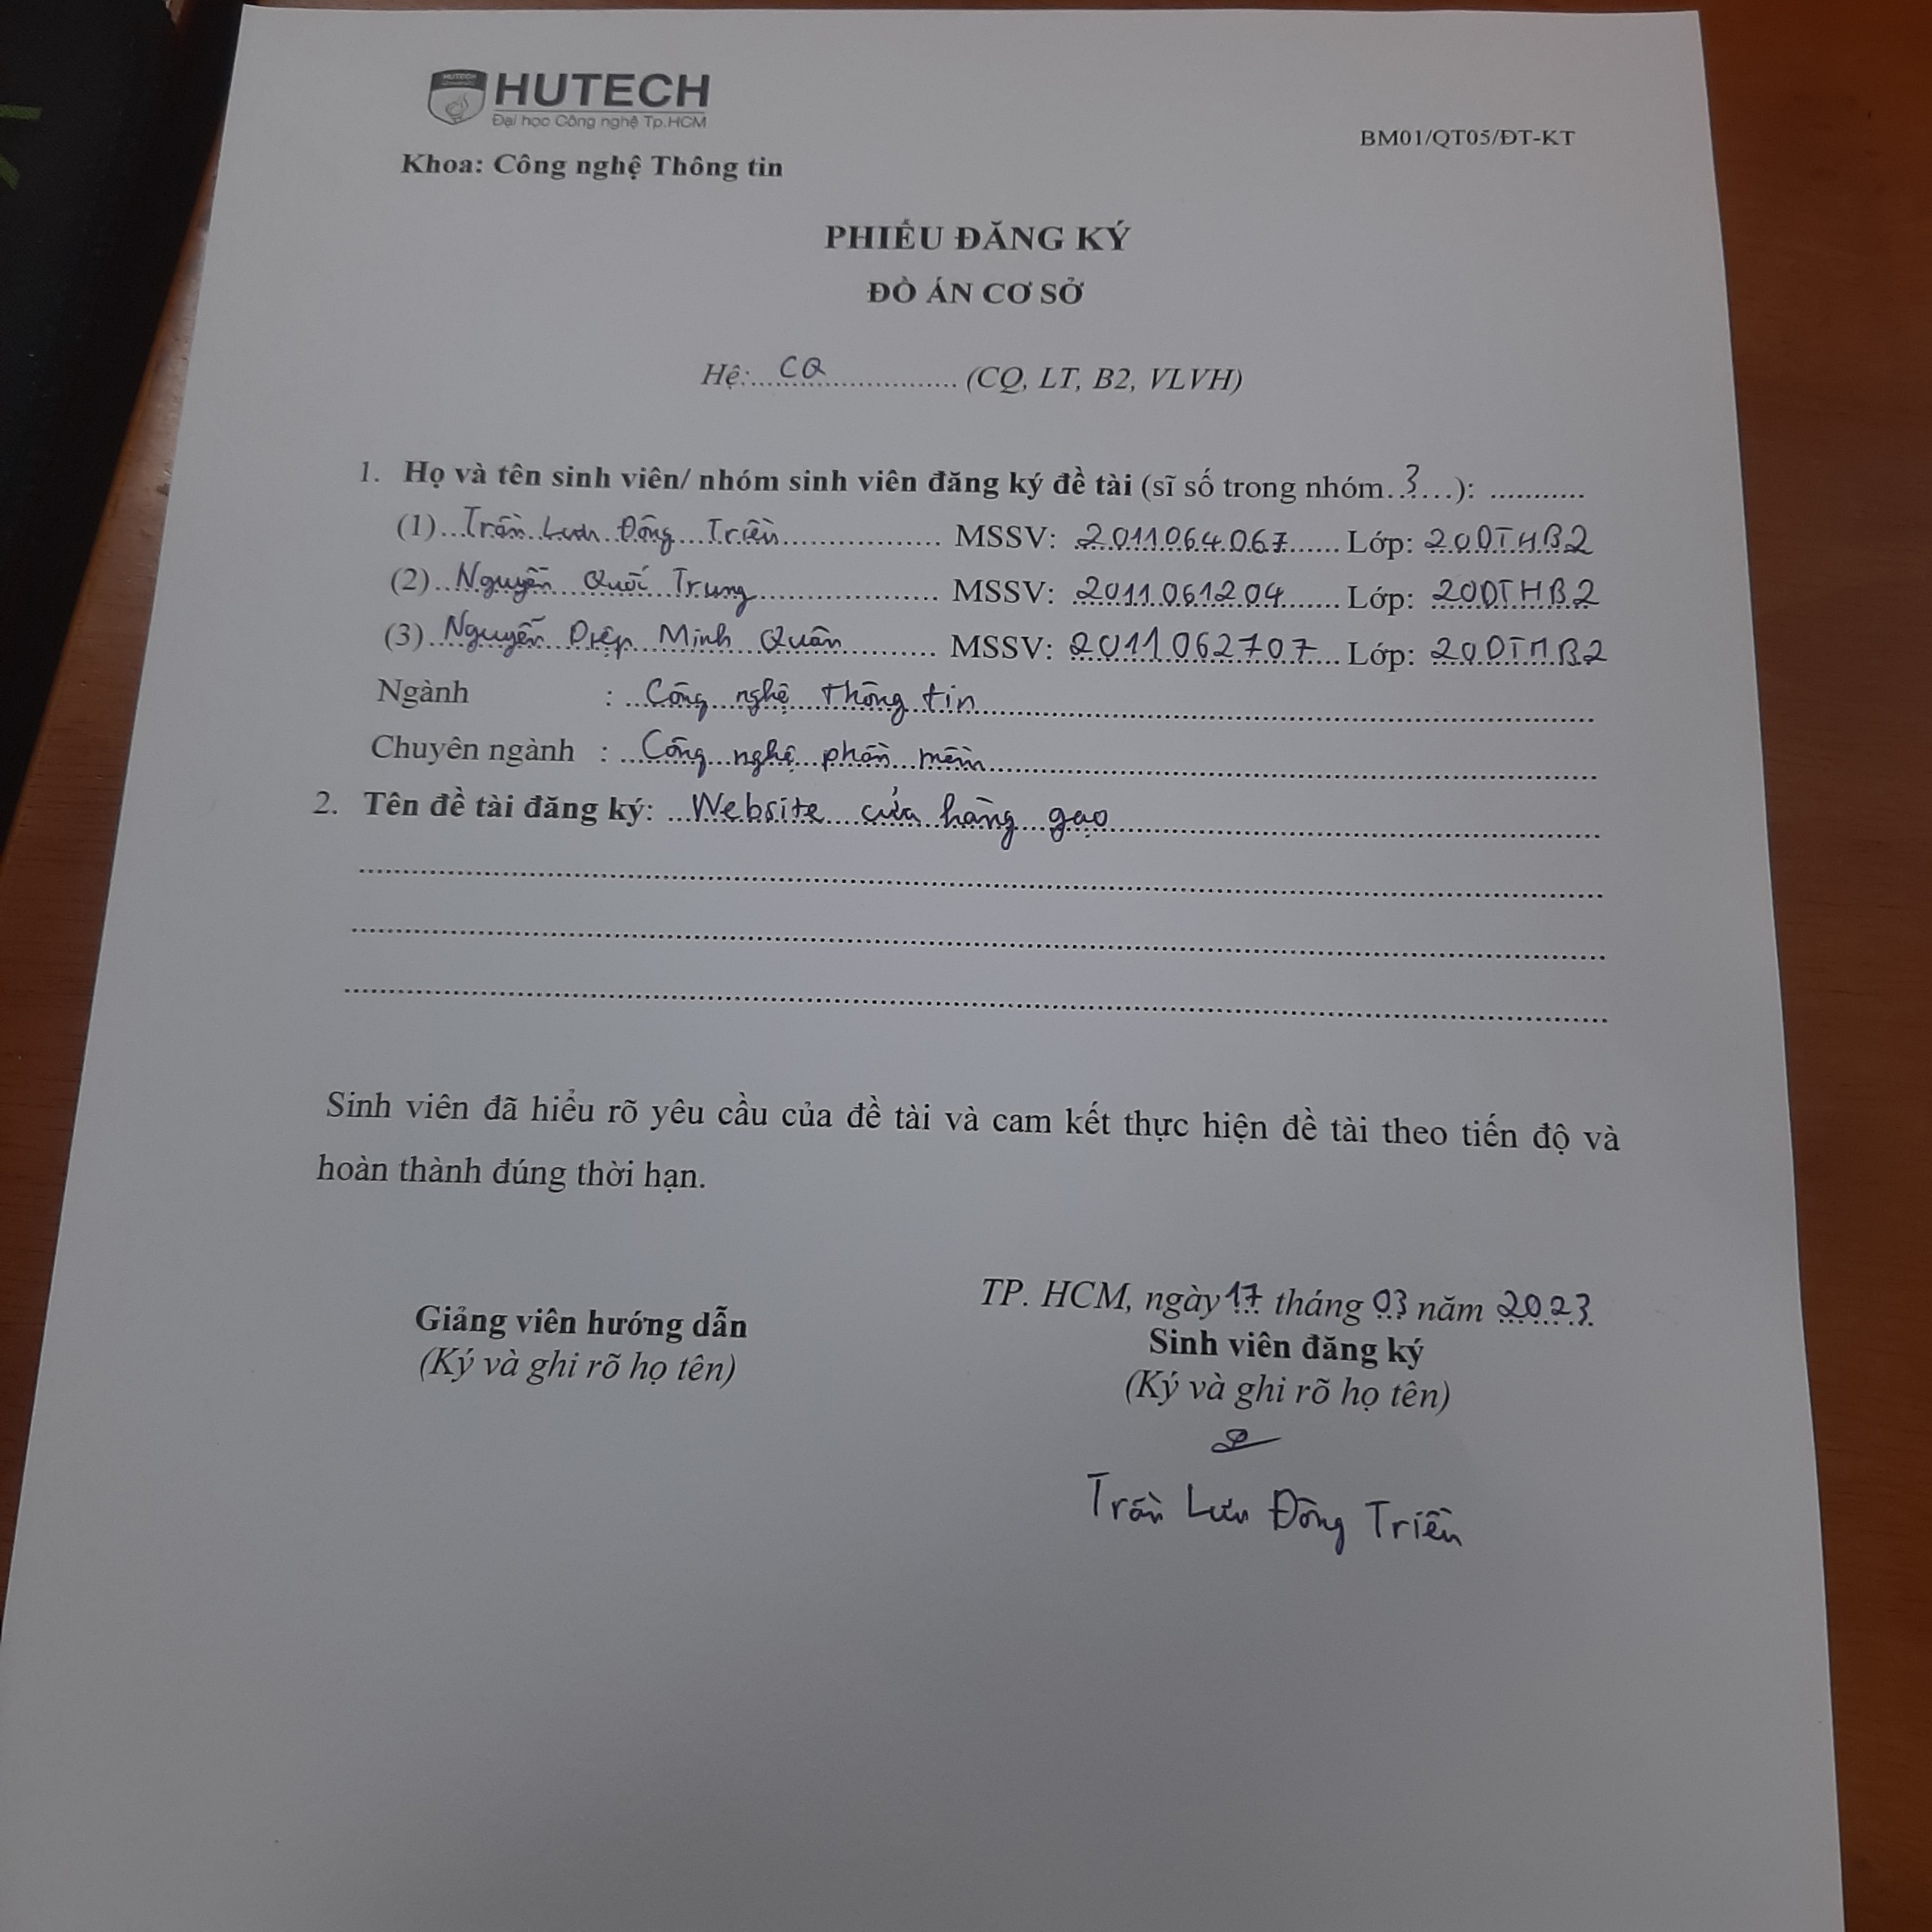 HUTECH
Đại học Công nghệ Tp.HCM
BM01/QT05/ĐT-KT
Khoa: Công nghệ Thông tin
PHIẾU ĐĂNG KÝ
ĐỒ ÁN CƠ SỞ
Hệ: CQ (CQ, LT, B2, VLVH)
1. Họ và tên sinh viên/ nhóm sinh viên đăng ký đề tài (sĩ số trong nhóm 3): ...........
(1) Trần Lưu Đồng Triền MSSV: 2011064067 Lớp: 20DTHB2
(2) Nguyễn Quốc Trung MSSV: 2011061204 Lớp: 20DTHB2
(3) Nguyễn Diệp Minh Quân MSSV: 2011062707 Lớp: 20DTHB2
Ngành : Công nghệ thông tin
Chuyên ngành : Công nghệ phần mềm
2. Tên đề tài đăng ký: Website cửa hàng gạo
Sinh viên đã hiểu rõ yêu cầu của đề tài và cam kết thực hiện đề tài theo tiến độ và
hoàn thành đúng thời hạn.
TP. HCM, ngày 17 tháng 03 năm 2023
Giảng viên hướng dẫn
(Ký và ghi rõ họ tên)
Sinh viên đăng ký
(Ký và ghi rõ họ tên)
Trần Lưu Đồng Triền